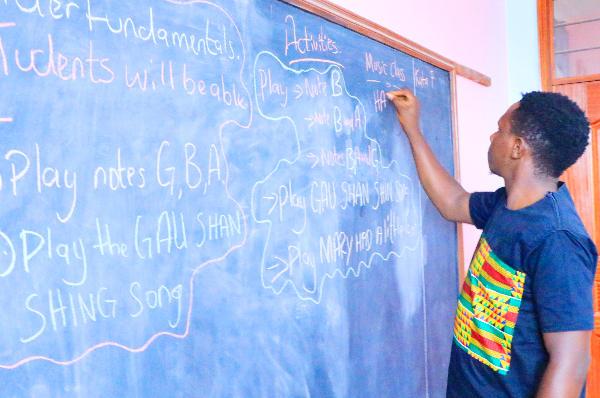 Fundamentals.
Students will be able
Play notes G,B,A
Play the GAU SHAN
SHING Song
Activities
Play → Note B
→ Note B and A
→ Notes B, A and G
→ Play GAU SHAN SHIN
→ Play MARY HAD A little
Music Class
HA